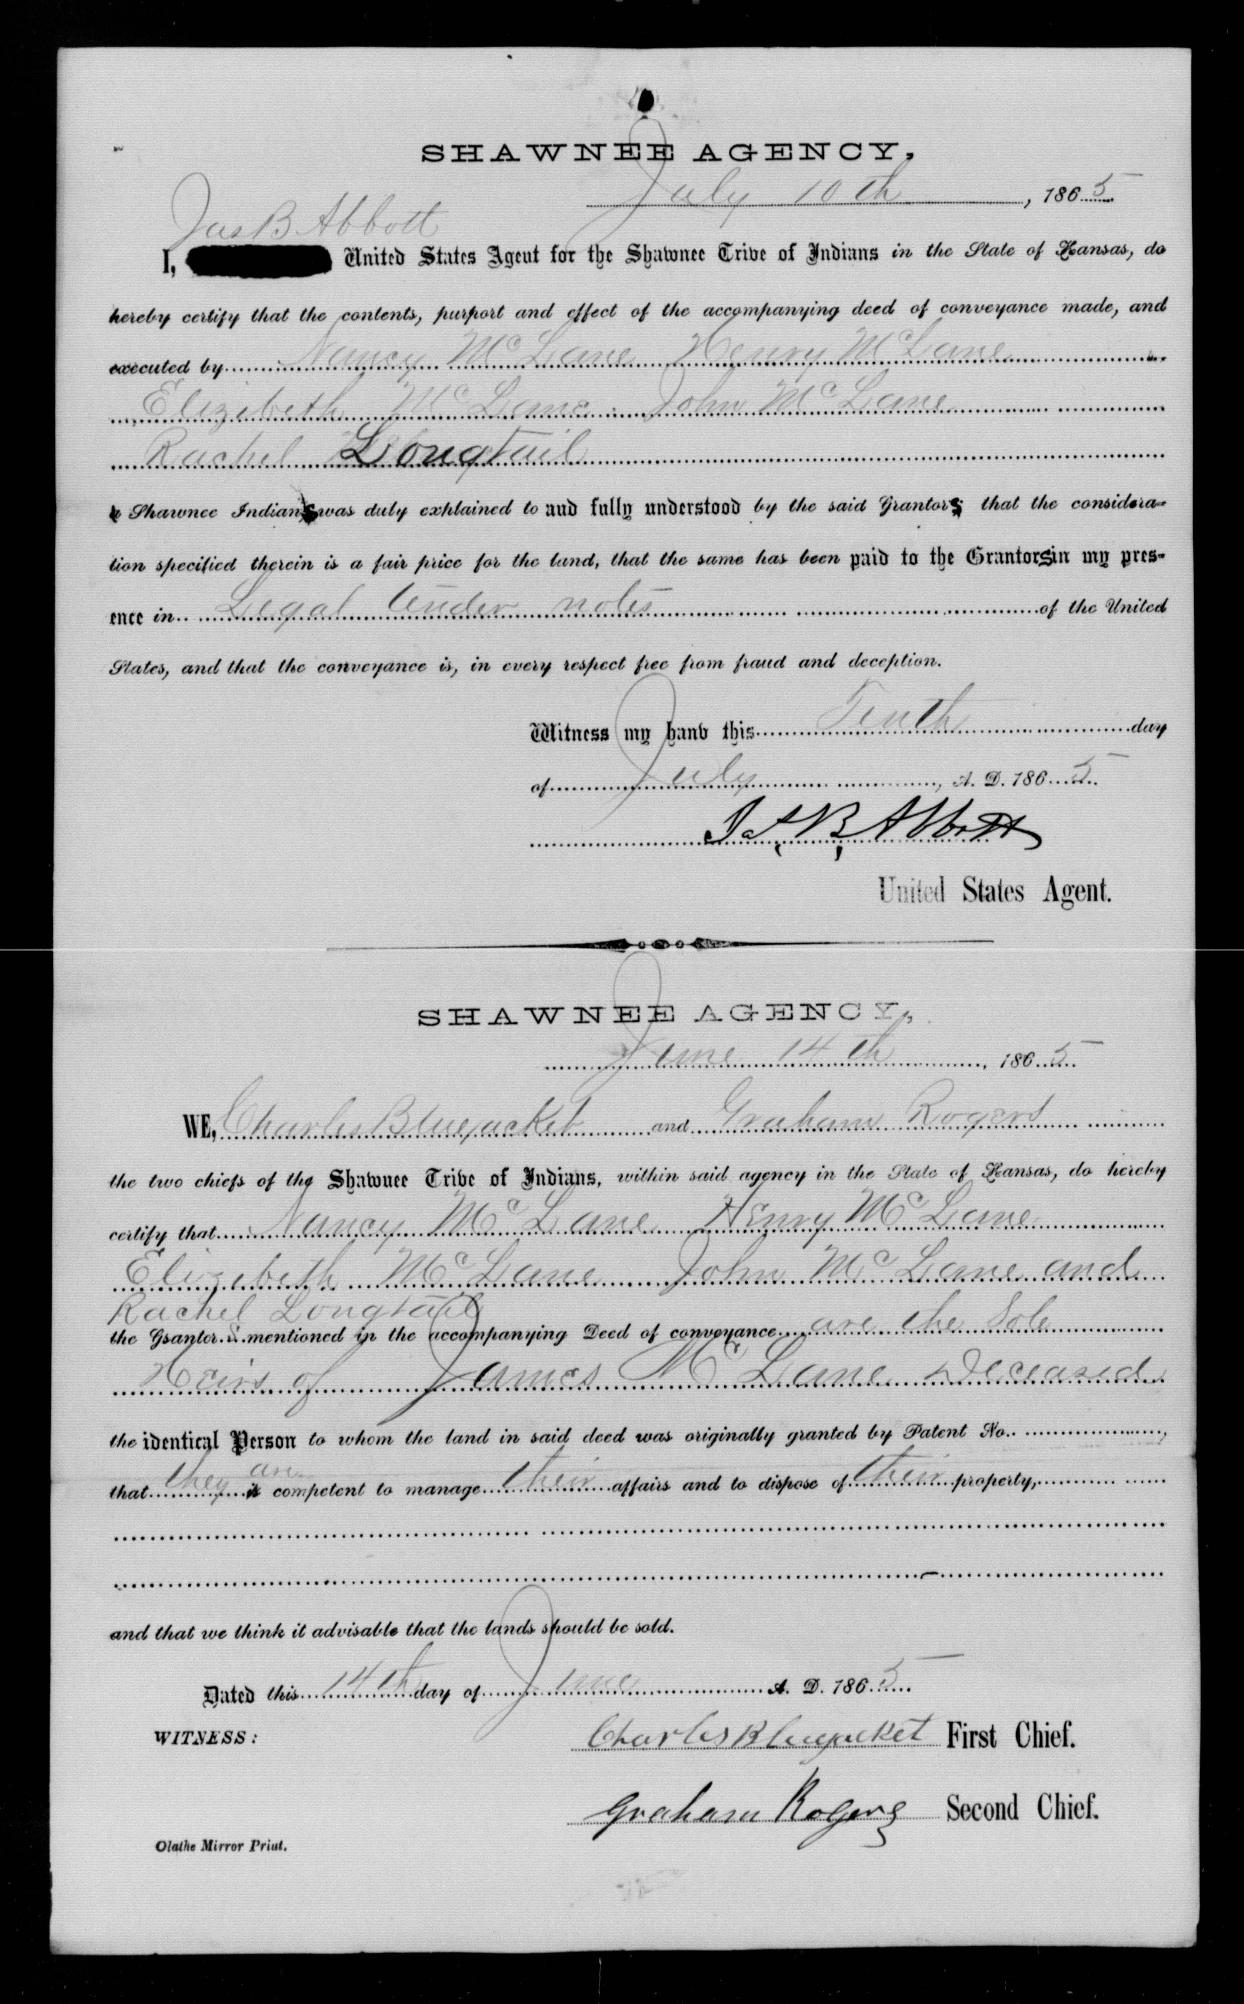 SHAWNEE AGENCY,
July 10th, 1865
Jas B Abbott
I, United States Agent for the Shawnee Tribe of Indians in the State of Kansas, do
hereby certify that the contents, purport and effect of the accompanying deed of conveyance made, and
executed by Nancy McLane Henry McLane
Elizebeth McLane John McLane
Rachel Longtail
a Shawnee Indians was duly explained to and fully understood by the said Grantors that the considera-
tion specified therein is a fair price for the land, that the same has been paid to the Grantors in my pres-
ence in Legal tender notes of the United
States, and that the conveyance is, in every respect free from fraud and deception.
Witness my hand this Tenth day
of July, A. D. 1865
Jas. B. Abbott
United States Agent.
SHAWNEE AGENCY,
June 14th, 1865
WE, Charles Bluejacket and Graham Rogers
the two chiefs of the Shawnee Tribe of Indians, within said agency in the State of Kansas, do hereby
certify that Nancy McLane Henry McLane
Elizebeth McLane John McLane and
Rachel Longtail
the Grantors mentioned in the accompanying Deed of conveyance are the Sole
Heirs of James McLane Deceased
the identical Person to whom the land in said deed was originally granted by Patent No.
are
that they is competent to manage their affairs and to dispose of their property,
and that we think it advisable that the lands should be sold.
Dated this 14th day of June A. D. 1865
WITNESS:
Charles Bluejacket First Chief.
Graham Rogers Second Chief.
Olathe Mirror Print.